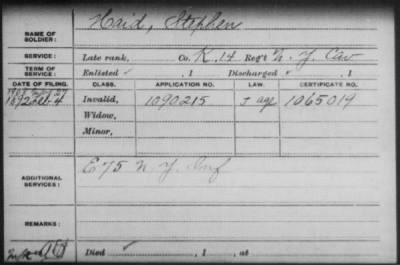 NAME OF SOLDIER: Haid, Stephen
SERVICE: Late rank, Co. K, 14 Reg't N. Y. Cav
TERM OF SERVICE: Enlisted , 1 Discharged , 1
DATE OF FILING. CLASS. APPLICATION NO. LAW. CERTIFICATE NO.
Invalid, 1090215 age 1065019
Widow,
Minor,
ADDITIONAL SERVICES: E 75 N. Y. Inf
REMARKS:
Died , 1 , at